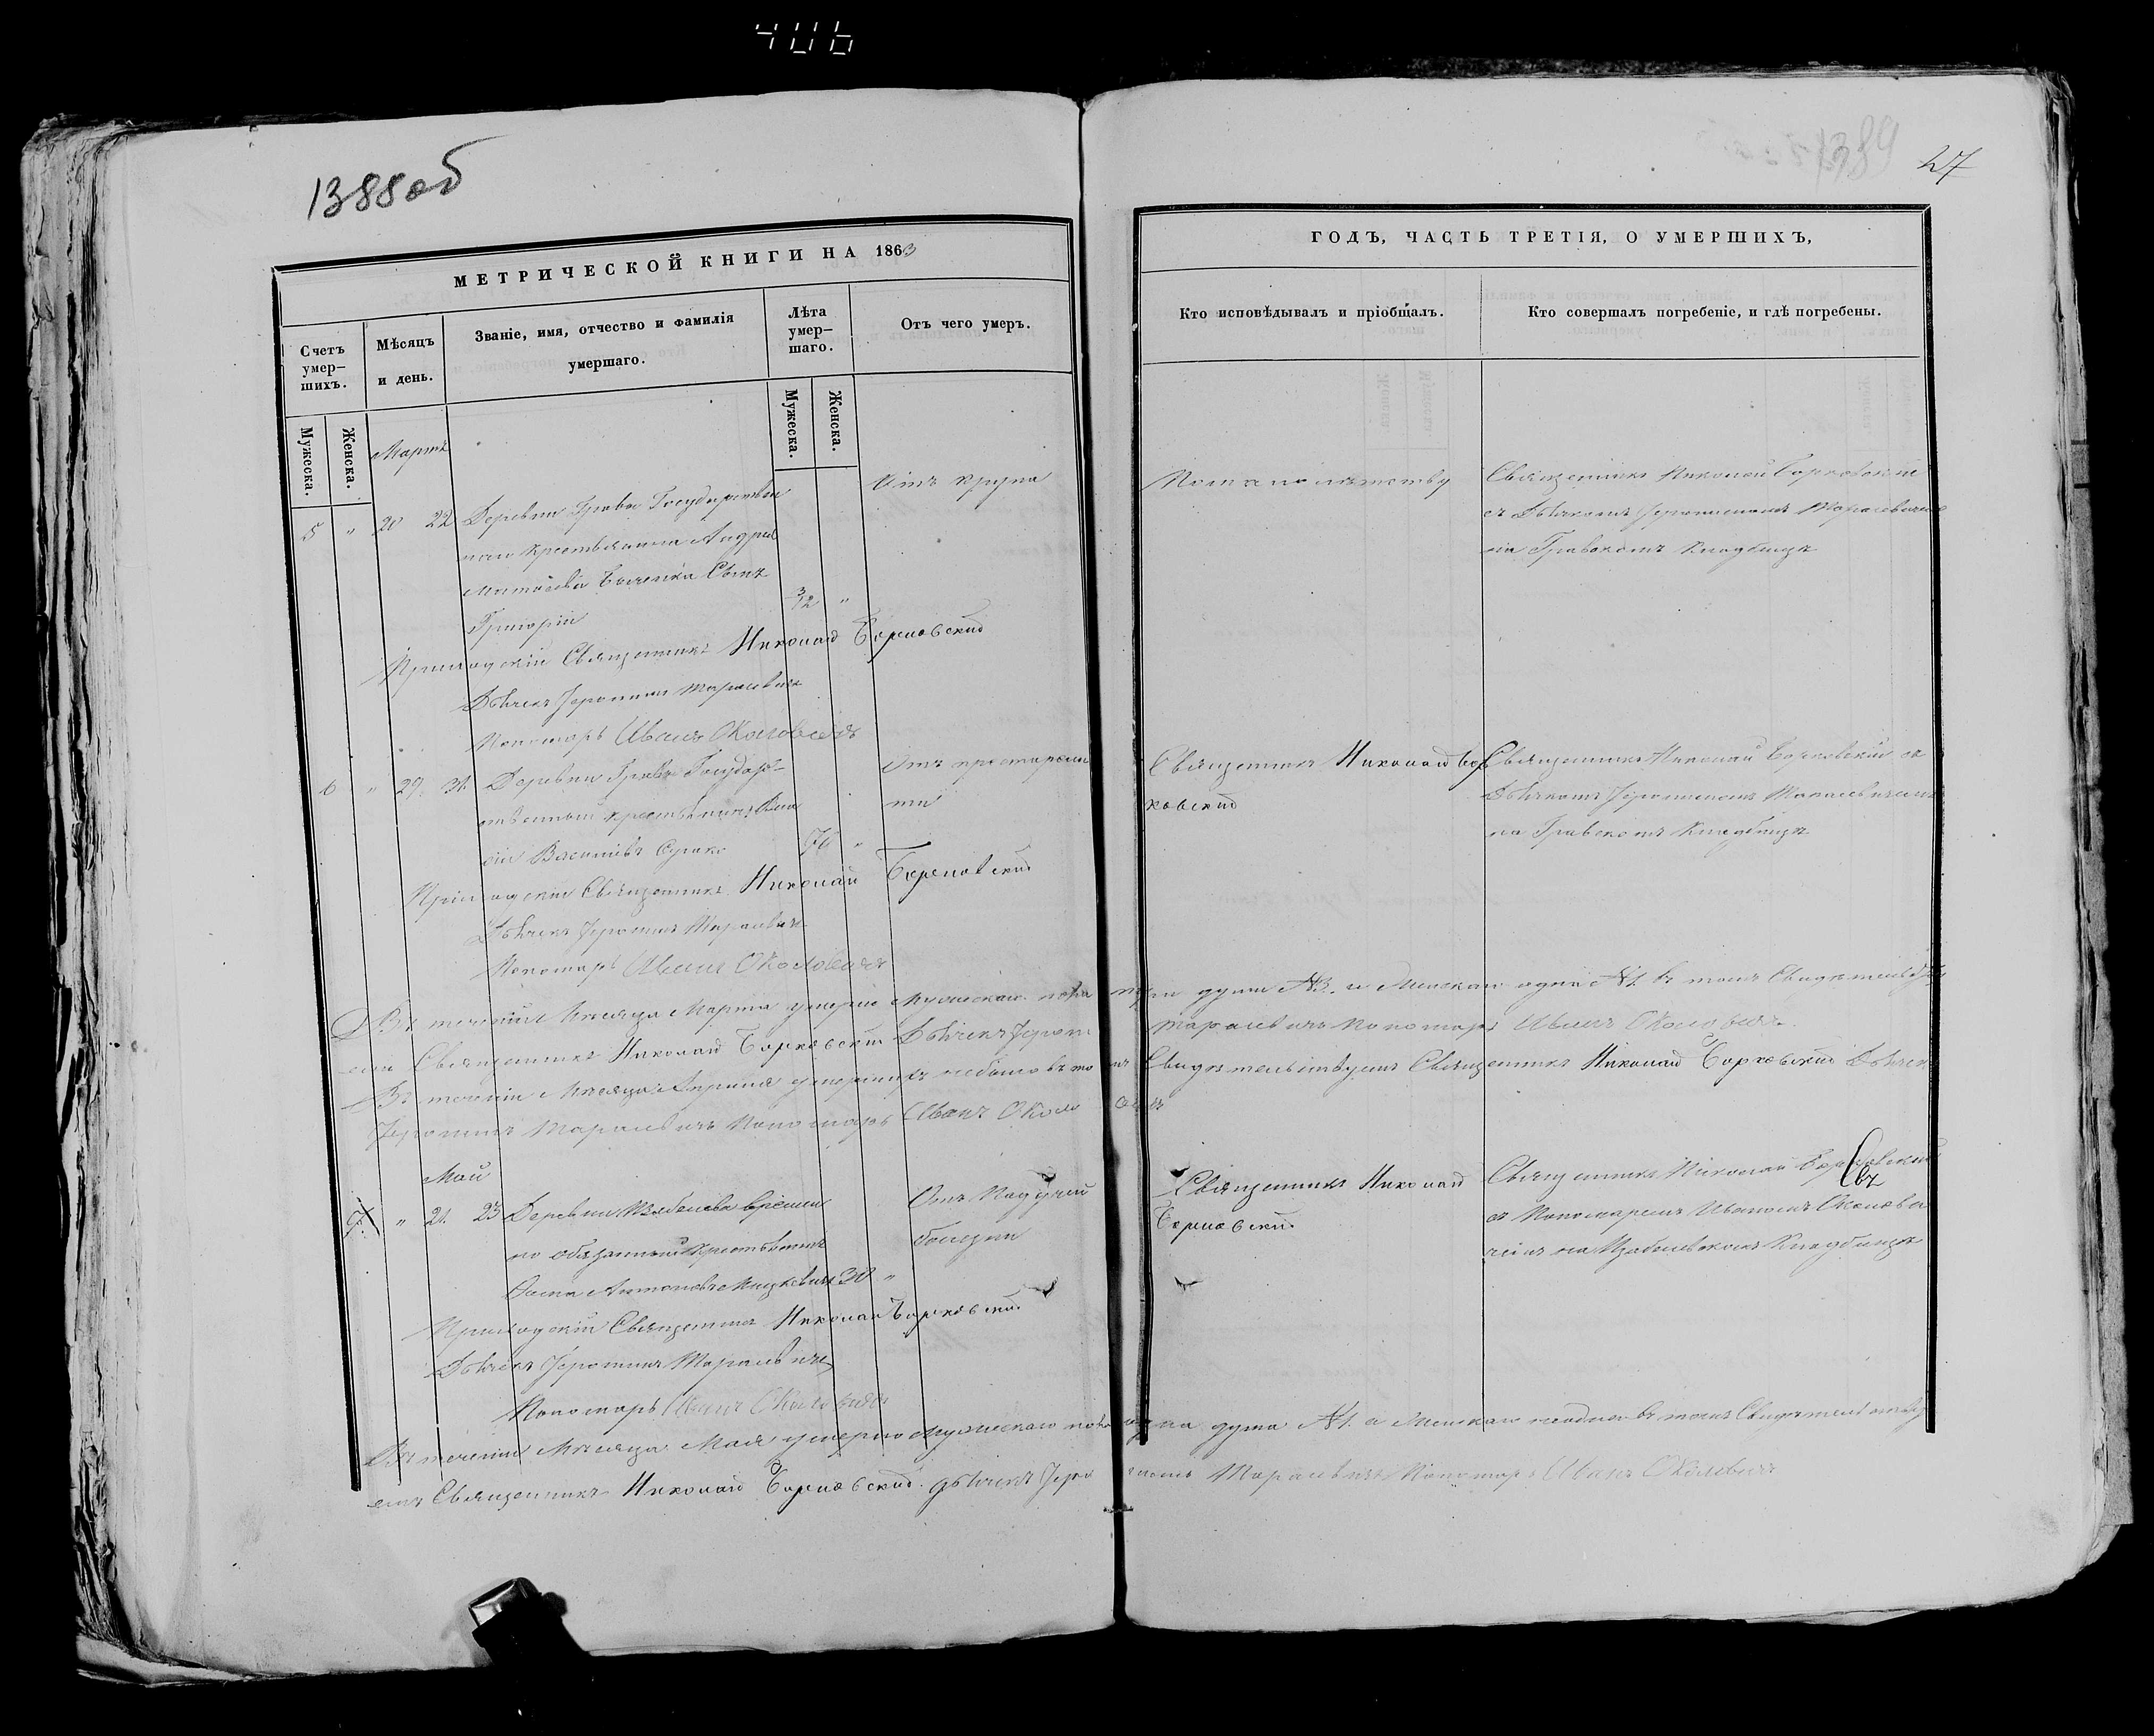 406
1388об
1389
27
МЕТРИЧЕСКОЙ КНИГИ НА 1863
ГОДЪ, ЧАСТЬ ТРЕТІЯ, О УМЕРШИХЪ,
Счетъ умер-
шихъ.
Мѣсяцъ
и день.
Званіе, имя, отчество и фамилія
умершаго.
Лѣта
умер-
шаго.
Отъ чего умеръ.
Кто исповѣдывалъ и пріобщалъ.
Кто совершалъ погребеніе, и гдѣ погребены.
Мужеска.
Женска.
Мужеска.
Женска.
Мартъ
5 " 20 22 Деревни Грива Государствен
наго крестьянина Андрея
сынъ
Григорій
3/12 "
Отъ крупа
Священникъ Николай Борковскій
съ Дьячкомъ Іеронимомъ
на Гривскомъ Кладбищѣ
Приходскій Священникъ Николай Борковскій
Дьячекъ Іеронимъ Тарасевичъ
Пономарь Иванъ Околовичъ
6 " 29. 31. Деревни Грива Государ-
ственный крестьянинъ
Васильевъ
70 "
Отъ престарело
сти
Священникъ Николай Бор
ковскій
Священникъ Николай Борковскій съ
Дьячкомъ Іеронимомъ Тарасевичемъ
на Гривскомъ Кладбищѣ
Приходскій Священникъ Николай Борковскій
Дьячекъ Іеронимъ Тарасевичъ
Пономарь Иванъ Околовичъ
Въ теченіи Мѣсяца Марта умерло мужескаго пола три души №3. и Женскаго одна №1. въ томъ Свидѣтельству
емъ Священникъ Николай Борковскій Дьячекъ Іероним Тарасевичъ Пономарь Иванъ Околовичъ
Въ теченіи Мѣсяца Апрѣля умершихъ небыло въ томъ Свидѣтельствуемъ Священникъ Николай Борковскій Дьячекъ
Іеронимъ Тарасевичъ Пономарь Иванъ Околовичъ
Май
7. " 21. 23 Деревни времен
но обязанный крестьянинъ
Антоновъ Мицкевичъ 30 "
Отъ Падучей
болезни
Священникъ Николай
Борковскій
Священникъ Николай Борковскій
съ Пономаремъ Иваномъ Околови
чемъ на Кладбищѣ
Приходскій Священникъ Николай Борковскій
Дьячекъ Іеронимъ Тарасевичъ
Пономарь Иванъ Околовичъ
Въ теченіи Мѣсяца Мая умерло мужескаго пола одна душа №1. а Женскаго неодной въ томъ Свидѣтельству
емъ Священникъ Николай Борковскій. Дьячекъ Іеронимъ Тарасевичъ Пономарь Иванъ Околовичъ